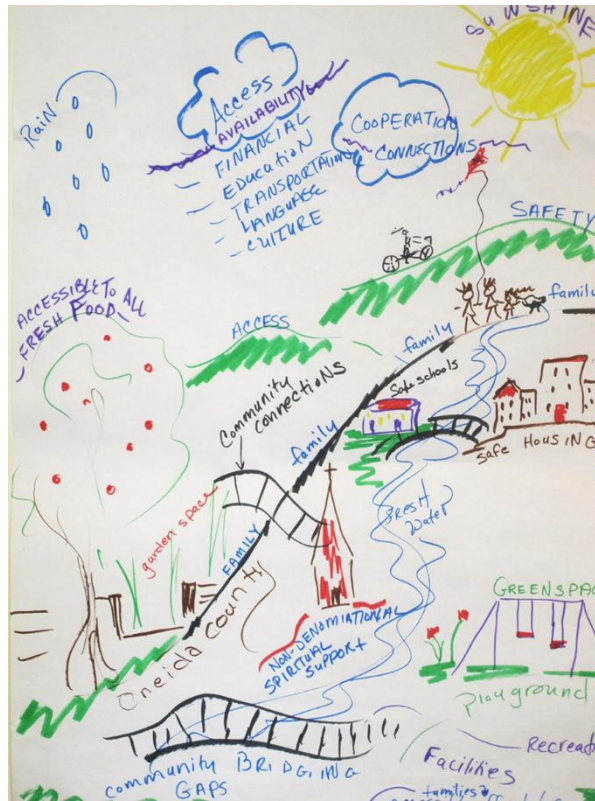 SUNSHINE
RAiN
Access
AVAILABILITY
- FINANCIAL
- EDucATioN
- TRANSPORTATION
- LANGUAGE
- CULTURE
COOPERATION
CONNECTIONS
SAFETY
ACCESSIBLE TO All
- FRESH FOOD -
ACCESS
family
family
Safe schools
Community
connections
family
safe HOUSING
FRESH
Water
garden space
FAMILY
Oneida county
NON-DENOMINATIONAL
SPIRITUAL
SUPPORT
GREENSPAC
playground
community BRIDGING
GAPS
Recreati
Facilities
families